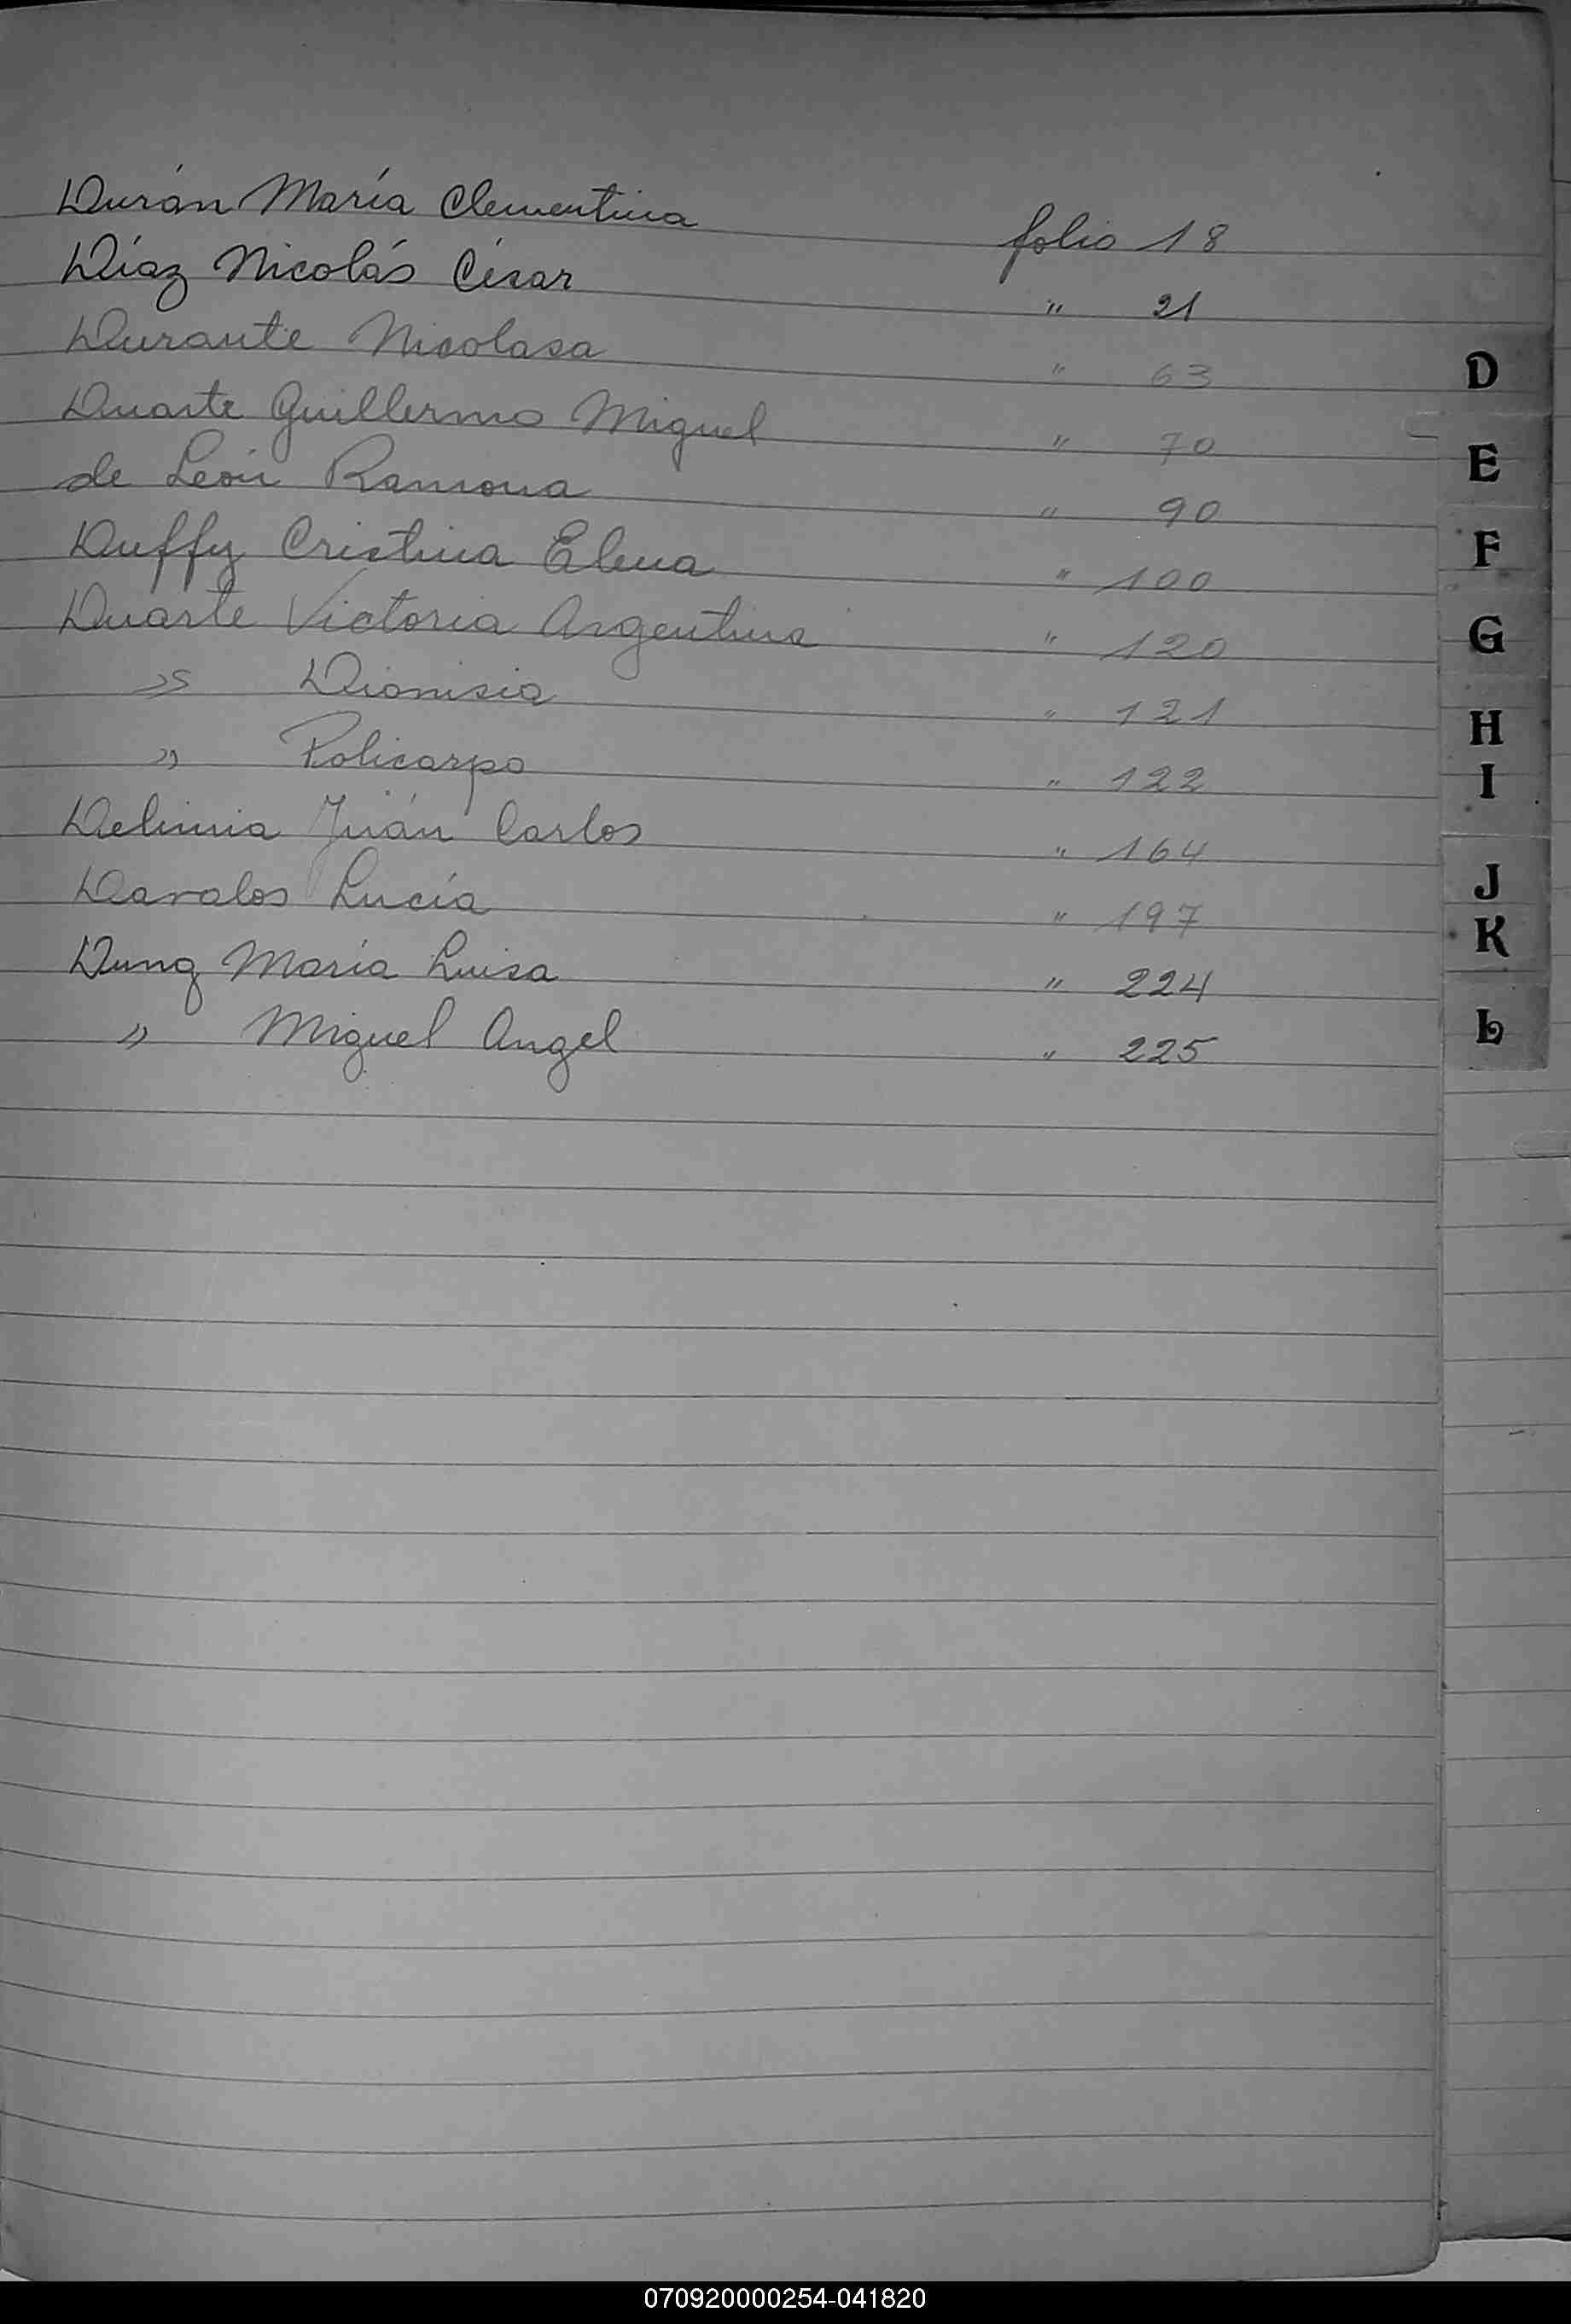 Durán María Clementina folio 18
Díaz Nicolás César " 21
Durante Nicolasa " 63
Duarte Guillermo Miguel " 70
de León Ramona " 90
Duffy Cristina Elena " 100
Duarte Victoria Argentina " 120
" Dionisia " 121
" Policarpo " 122
Juán Carlos " 164
Davalos Lucía " 197
María Luisa " 224
" Miguel Angel " 225
D
E
F
G
H
I
J
K
L
070920000254-041820